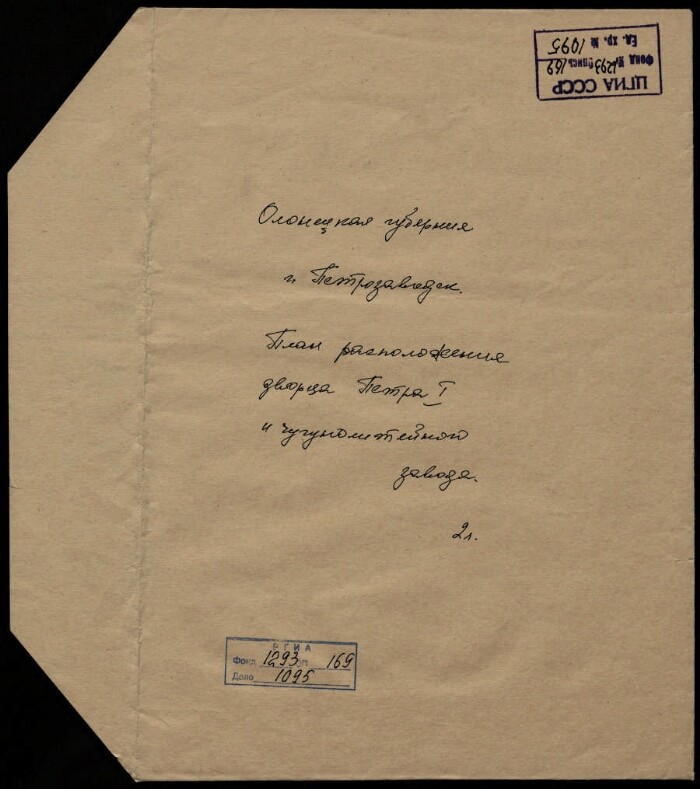 ЦГИА СССР
Фонд № 1293 Опись 169
Ед. хр. № 1095
Олонецкая губерния
г. Петрозаводск.
План расположения
дворца Петра I
и чугунолитейного
завода.
2 л.
РГИА
Фонд 1293 оп. 169
Дело 1095